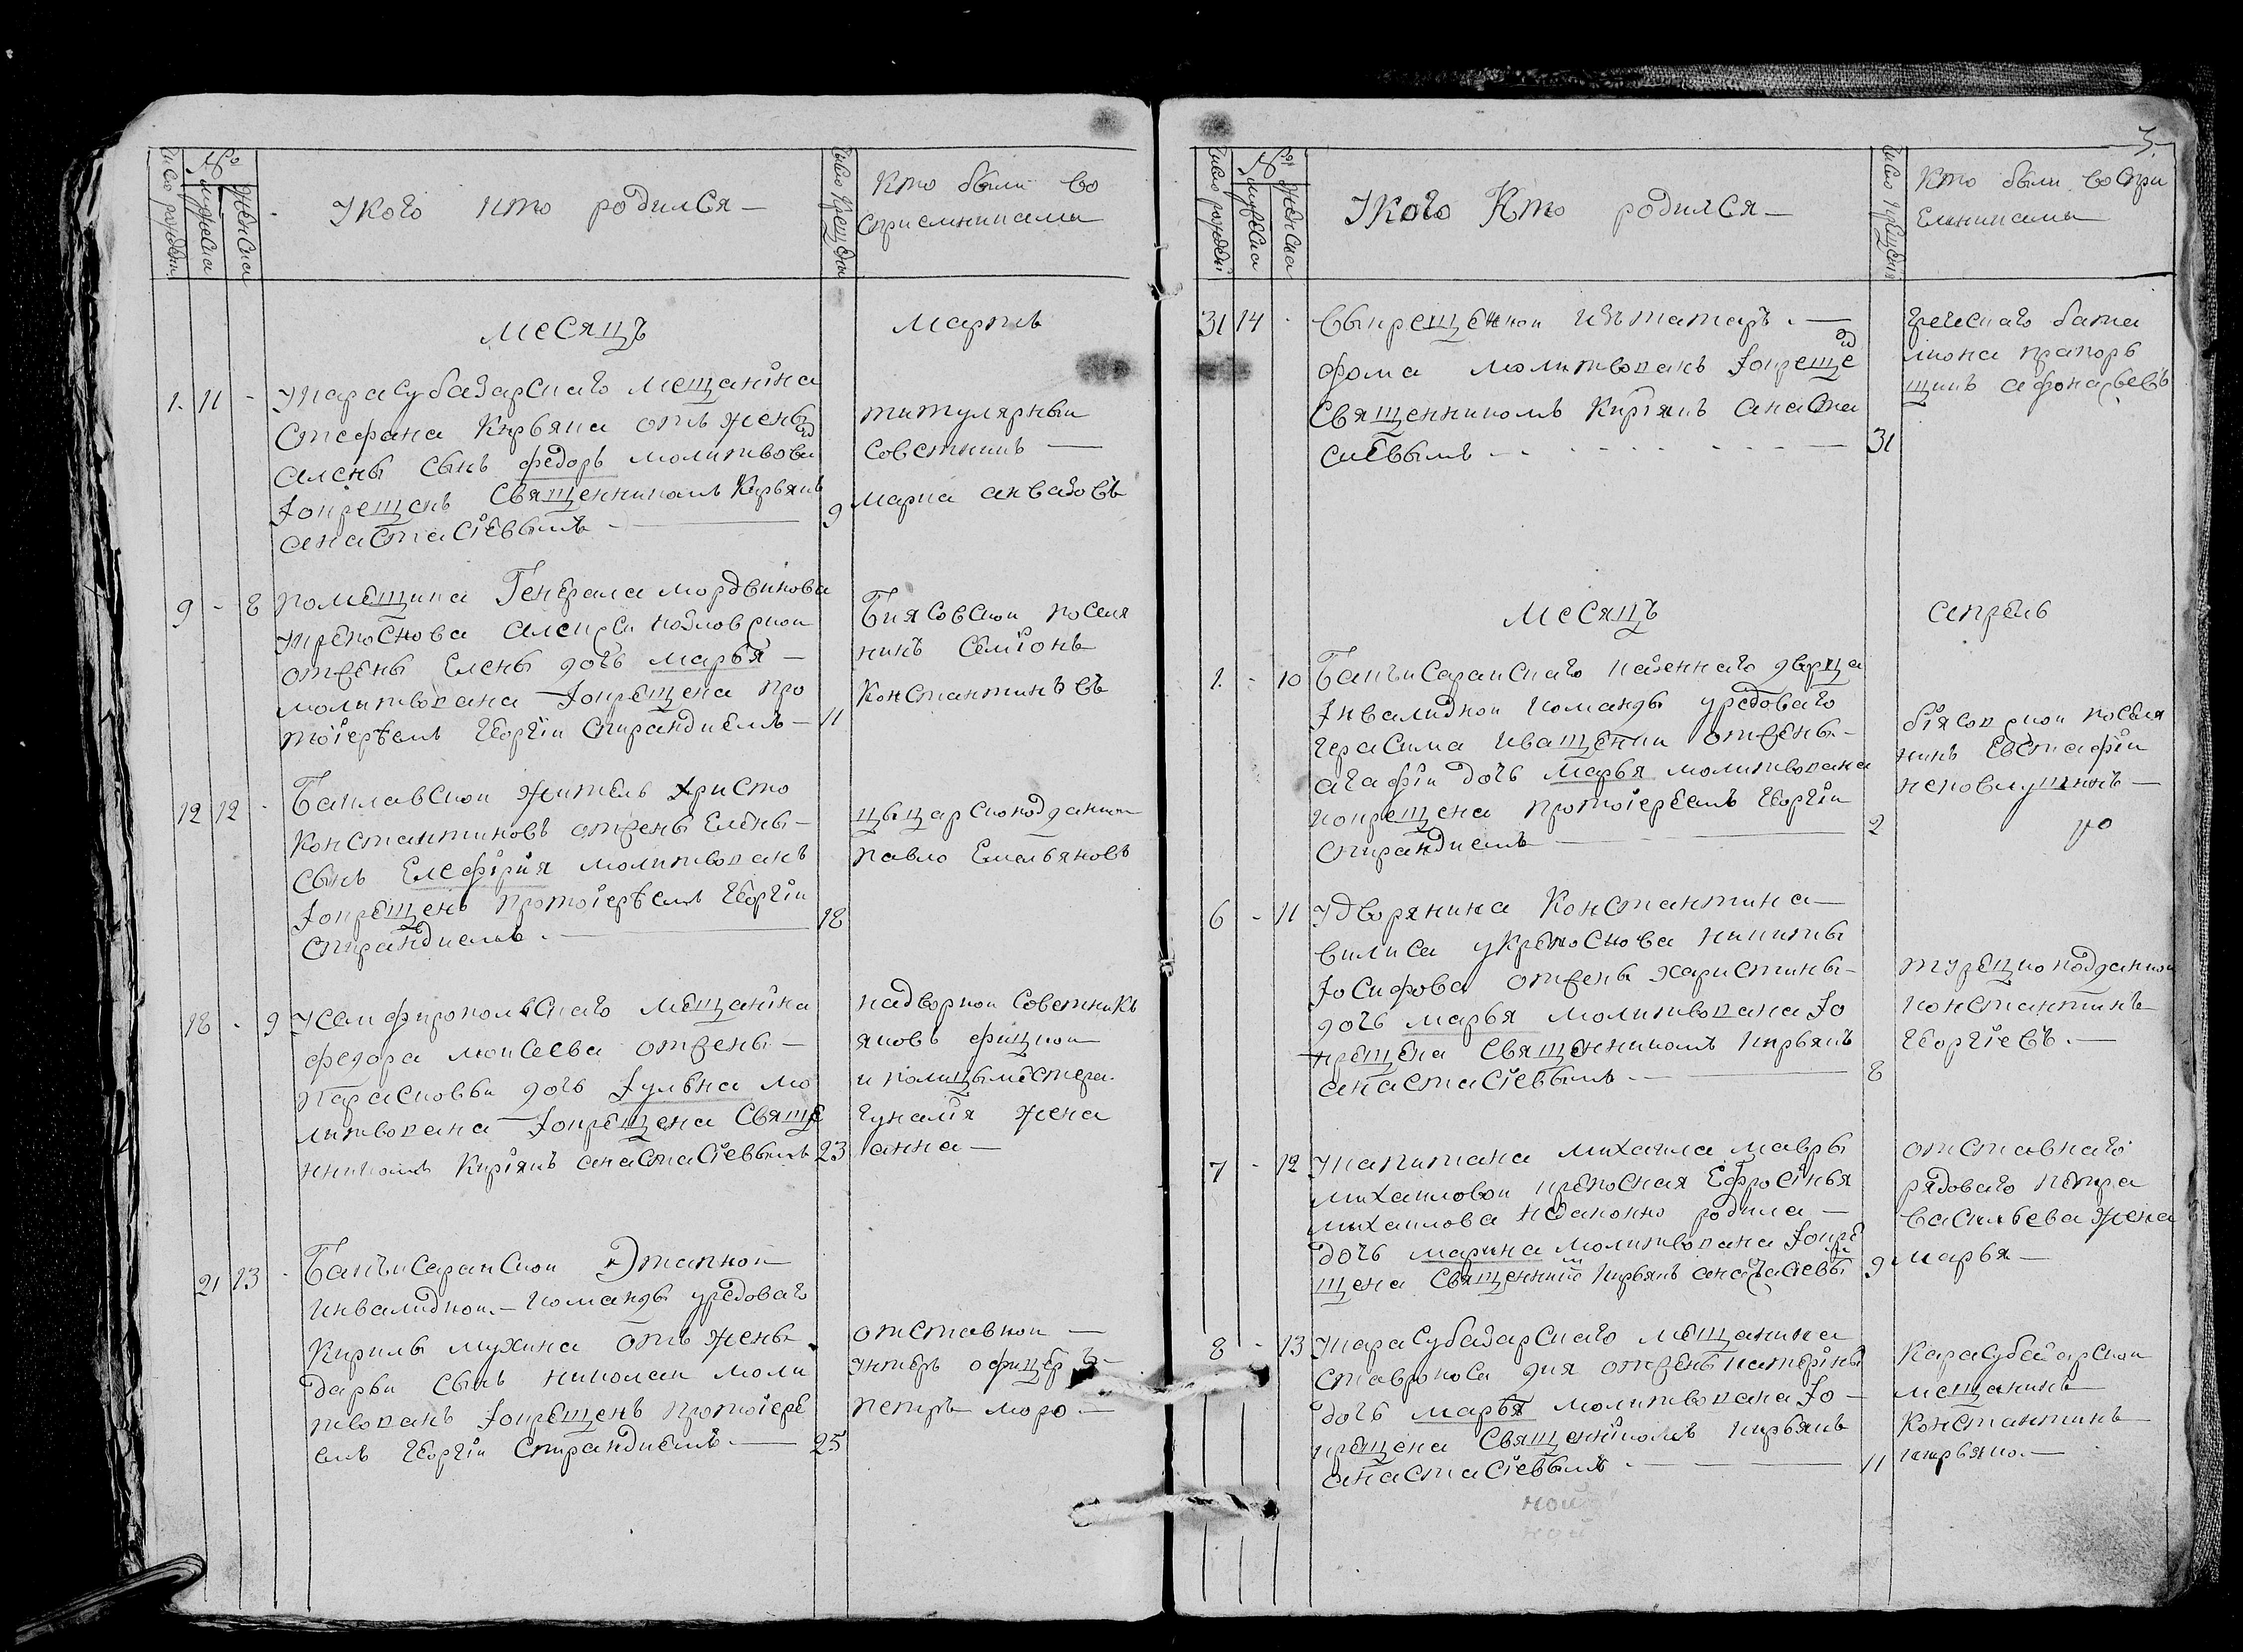 Число рожден.
№
мужеска
женска
Укого кто родился —
Число крещения
Кто были во
сприемниками
месяцъ
мартъ
1. 11 -
Укарасубазарскаго мещанiна
Стефана Кирьяка отъ жены
Алены сынъ федоръ молитвова
Iокрещенъ Священникомъ Кирьякъ
анастасiевымъ —
9
титулярныи
Советникъ —
марка анвазовъ
9 - 8
помещика Генерала мордвинова
укрепоснова Алексеи козловскои
отжены Елены дочь марья —
молитвована Iокрещена про
тоiереемъ Георгiи Спирандиемъ —
11
Биясовскои поселя
нинъ Семiонъ
Константиновъ
12 12 -
Баклавскои житель христо
Константиновъ отжены Елены —
сынъ Елефiрия молитвованъ
Iокрещенъ протоiереемъ Георгiи
спирандиемъ. —
18
цыцарскоподданнои
павло Емельяновъ
18 - 9
Усамфиропольскаго мещанiна
федора моисеева отжены —
парасковьи дочь Iульяна мо
литвована Iокрещена Свяще
нникомъ Кирiякъ анастасiевымъ
23
надворнои Советникъ
яковъ фицкои
и полицыместера
гунания жена
анна —
21 13 -
Бакчисараискои Этапнои
инвалиднои — команды уредоваго
Кирилы мухина отъ жены
дарьи сынъ николаи моли
твованъ Iокрещенъ протоiере
емъ Георгiи Спирандиемъ. —
25
отставнои —
унтеръ офицеръ —
петръ моро —
3
Число рожден
№
мужеска
женска
Укого Кто родился —
Число крещения
Кто были воспри
Емниками
31 14 -
выкрещенои изътатаръ. —
фома молитвованъ Iокреще
Священникомъ Кирiякъ Анаста
сиевымъ — —
31
греческаго бата
лиона прапоръ
щикъ афонасьевъ
месяцъ
апрель
1. - 10
Бакчисараискаго казеннаго дворца
Iнвалиднои команды уредоваго
Герасима Иващенки отжены —
агафiи дочь Марья молитвована
Iокрещена протоiереемъ Георгiи
спирандиемъ —
2
бiясовскои поселя
нинъ Евстафiи
6 - 11
Удворянина Константина —
вилиса укрепоснова никиты
Iосифова отжены харистины —
дочь марья молитвована Iо
крещена Священникомъ Кирьякъ
анастасiевымъ. —
8
турецкоподданнои
константинъ
Георгiевъ. —
7 - 12
Укапитана михаила мавры
михаиловои крепосная Ефросiнья
михаилова незаконно родила —
дочь марина молитвована Iокре
щена Священник Кирьякъ анастасiевы
9
отставнаго
рядоваго петра
васильева жена
марья —
8 - 13
Укарасубазарскаго мещанина
ставракоса дия отжены катерины
дочь марья молитвована Iо —
крещена Священiкомъ кирьякъ
анастасiевымъ. —
11
Карасубазарскои
мещанинъ
Константинъ
кирьяко. —
нои
нои